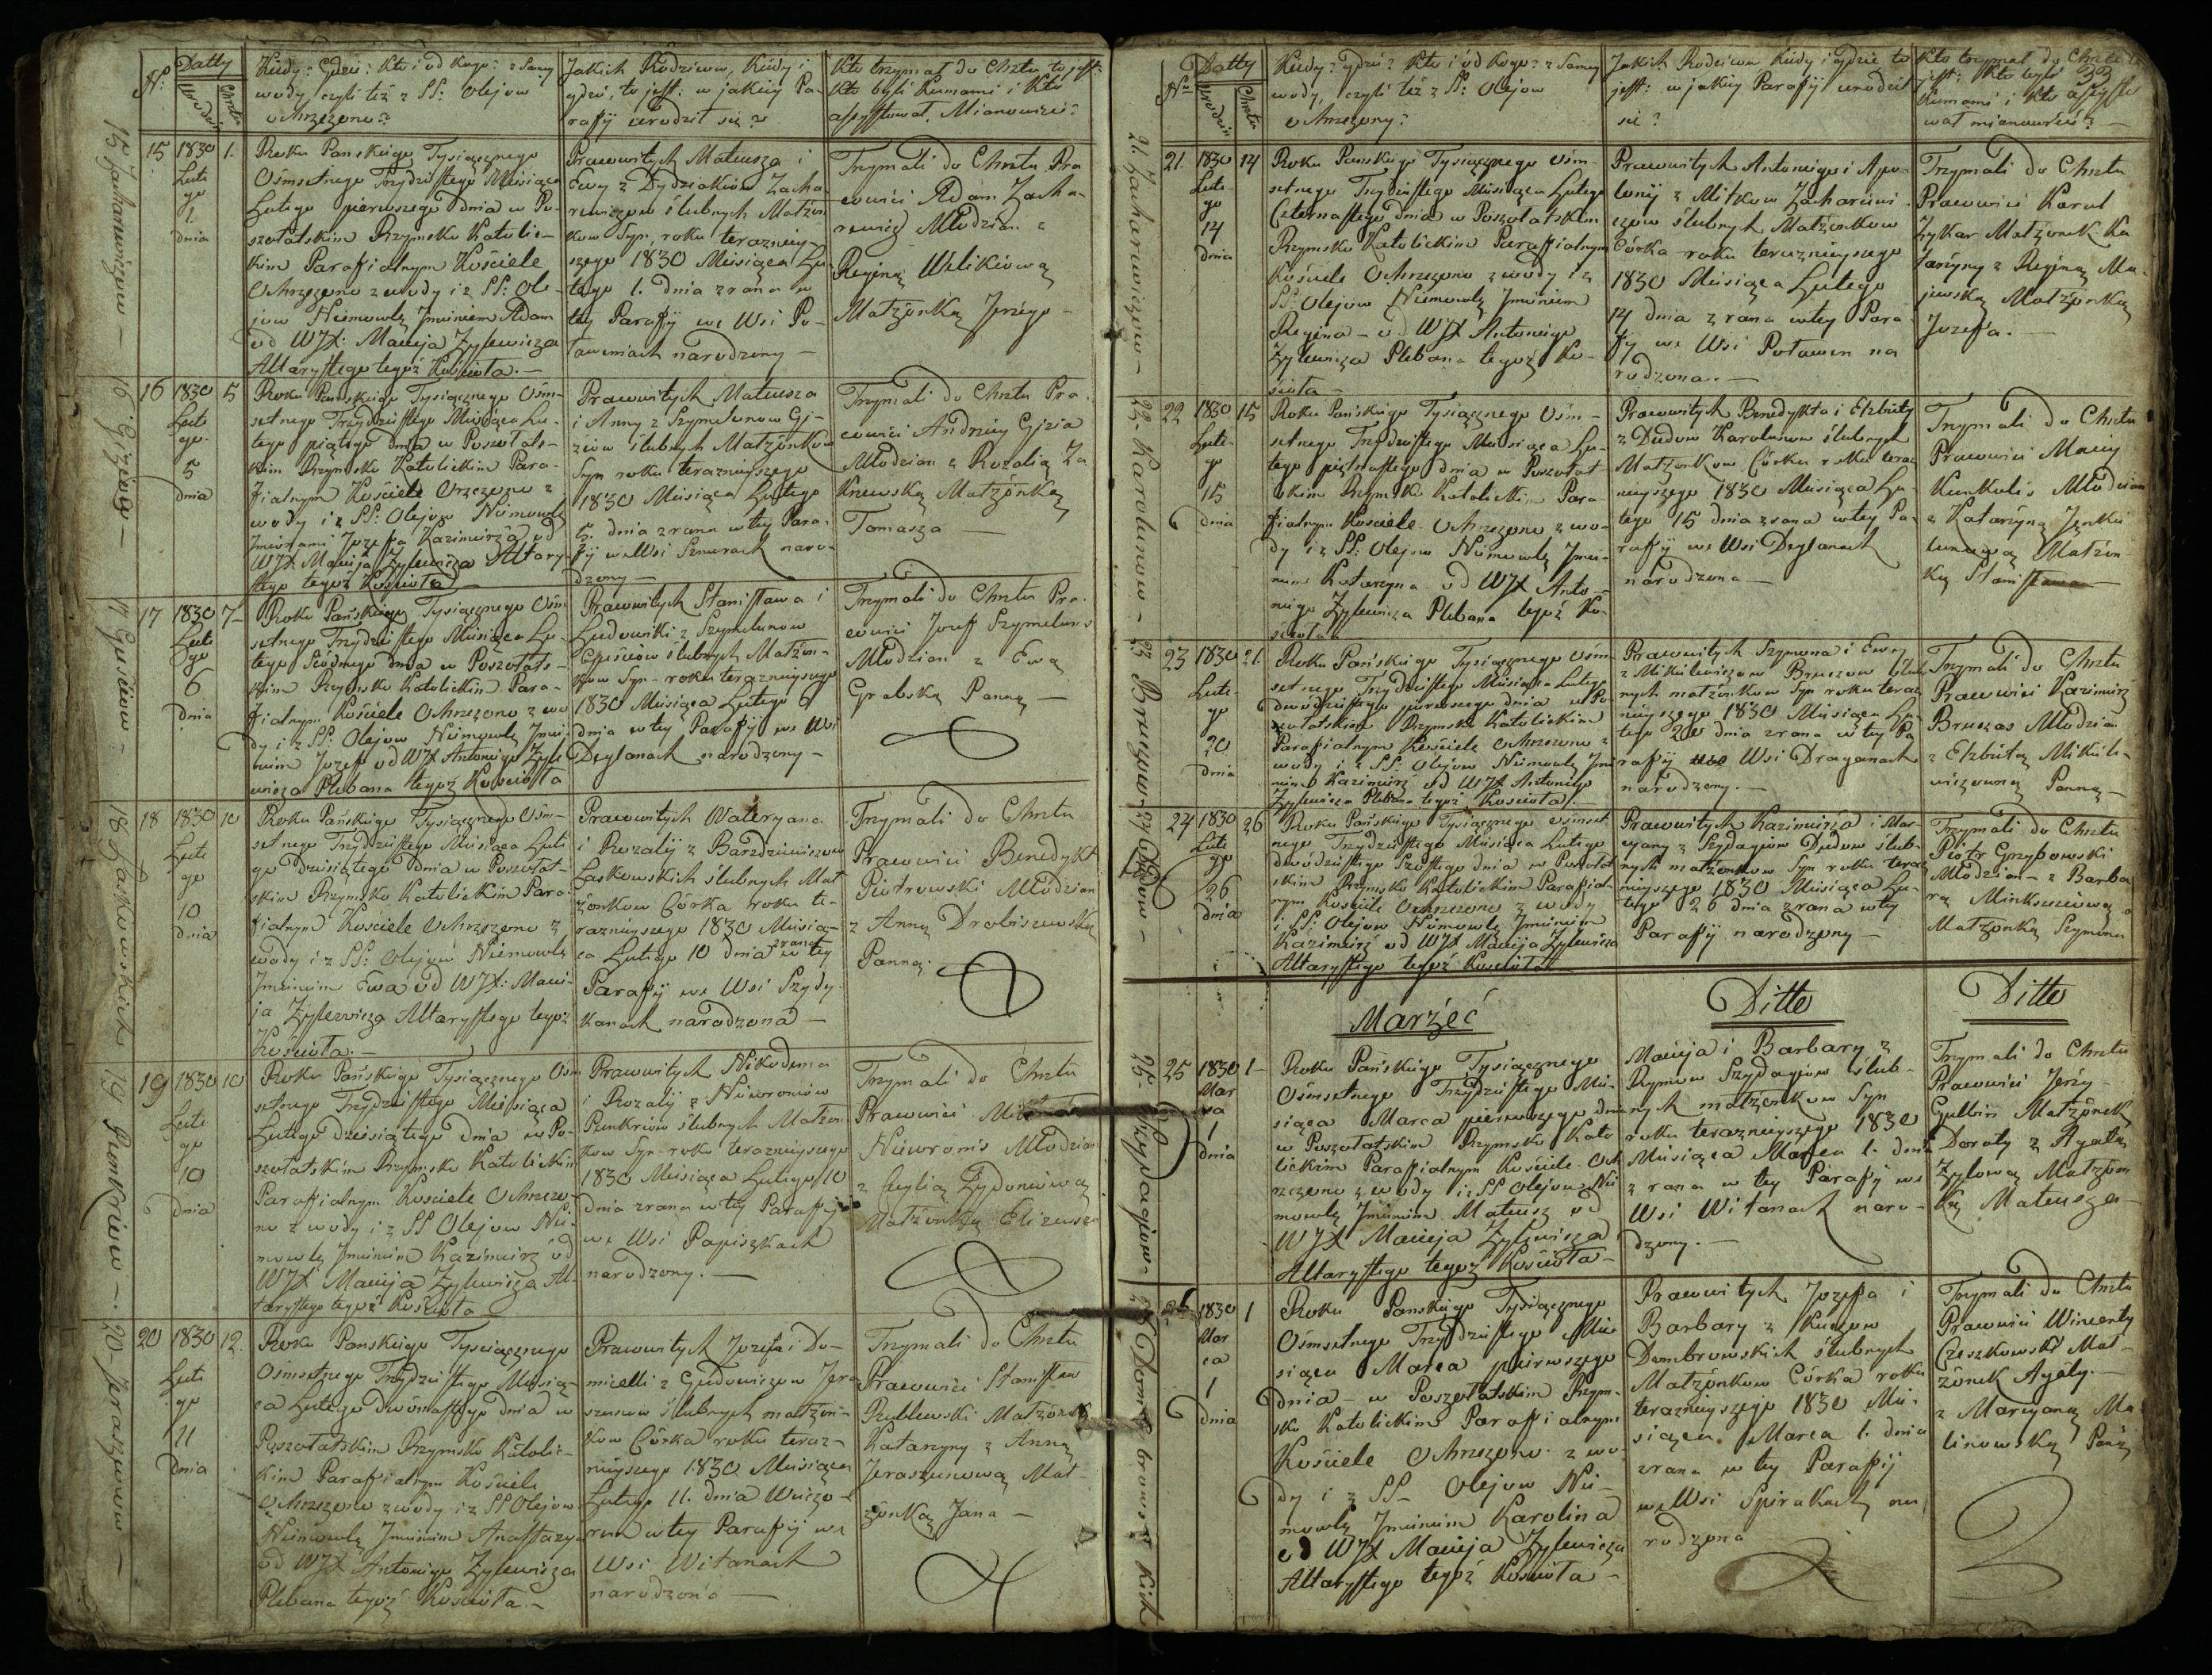 No
Datty
Urodzin
Chrztu
Kiedy? Gdzie? Kto i od Kogo? z Samey
wody, czyli też z SS: Olejow
ochrzczono?
Jakich Rodzicow, Kiedy i
gdzie, to jest: w jakiey Pa-
rafij urodził się?
Kto trzymał do Chrztu to jest:
Kto byli Kumami i Kto
assystował. Mianowicie?
15 Zacharewiczow —
15
1830
Lute
go
1.
dnia
1.
Roku Panskiego Tysiącznego
Ośmsetnego Trzydziestego Miesiąca
Lutego pierwszego dnia w Po-
szołatskim Rzymsko Katolic-
kim Parafialnym Kościele
Ochrzczono z wody i z SS: Ole-
jow Niemowlę Imieniem Adam
od WJX: Macieja Zylewicza
Altarystego tegoż Kościoła. —
Prawowitych Mateusza i
Ewy z Dydziakiow Zacha-
rewiczow ślubnych Małżon
kow Syn, roku terazniey-
szego 1830 Miesiąca Lu-
tego 1. dnia zrana w
tey Parafij we Wsi Po-
ławeniach narodzony —
Trzymali do Chrztu Pra
wowici Adam Zacha-
rewicz Młodzian z
Reginą Welikiową
Małżonką Jerzego —
16 Gizciow —
16
1830
Lute
go.
5
dnia
5
Roku Panskiego Tysiącznego Ośm-
setnego Trzydziestego Miesiąca Lu-
tego piątego dnia w Poszołats-
kim Rzymsko Katolickim Para-
fialnym Kościele Orzczono z
wody i z SS: Olejow Niemowlę
Imionami Jozefa Kazimierza od
WJX Macieja Zylewicza Altary-
stego tegoż Kościoła
Prawowitych Mateusza
i Anny z Szymelunow Gi-
zciow ślubnych Małżonkow
Syn roku teraznieyszego
1830 Miesiąca Lutego
5. dnia zrana w tey Para-
fij we Wsi Szmurach naro-
dzony —
Trzymali do Chrztu Pra-
wowici Andrzey
Młodzian z Rozalią Za
Knewską Małżonką
Tomasza —
17
1830
Lute
go
6
dnia
7—
Roku Pańskiego Tysiącznego Ośm
setnego Trzydziestego Miesiąca Lu-
tego Siódmego dnia w Poszołats-
kim Rzymsko Katolickim Para-
fialnym Kościele Ochrzczono z wo
dy i z SS: Olejow Niemowlę Imie-
niem Jozef od WJX Antoniego Zyle
wicza Plebana tegoż Kościoła
Prawowitych Stanisława i
Ludowiki z Szymelunow
ślubnych Małżon-
kow Syn — roku teraznieyszego
1830 Miesiąca Lutego 6
dnia w tey Parafij we Wsi
Deglanach narodzony —
Trzymali do Chrztu Pra-
wowici Jozef Szymelunas
Młodzian z Ewą
Grabską Panną —
18 Laskowskich
18
1830
Lute
go
10
dnia
10
Roku Pańskiego Tysiącznego Ośm-
setnego Trzydziestego Miesiąca Lute
go dziesiątego dnia w Poszołat-
skim Rzymsko Katolickim Para-
fialnym Kościele Ochrzczono z
wody i z SS: Olejow Niemowlę
Imieniem Ewa od WJX: Macie-
ja Zylewicza Altarystego tegoz
Kościoła. —
Prawowitych Waleryana
i Rozalij z Barzdziewiczow
Laskowskich ślubnych Mał
żonkow Córka roku te-
raznieyszego 1830 Miesią-
ca Lutego 10 dnia zrana w tey
Parafij we Wsi Szydy-
kanach narodzona —
Trzymali do Chrztu
Prawowici Benedykt
Piotrowski Młodzian
z Anną Drobiszewską
Panną.
19 Punkriow —
19
1830
Lute
go
10
dnia
10
Roku Pańskiego Tysiącznego Ośm
setnego Trzydziestego Miesiąca
Lutego dziesiątego dnia w Po-
szołatskim Rzymsko Katolickim
Parafialnym Kościele Ochrzczo-
no z wody i z SS Olejow Nie-
mowlę Imieniem Kazimierz od
WJX Macieja Zylewicza Al-
tarystego tegoż Kościoła
Prawowitych Nikodema
i Rozalij z Niewroniow
Punkriow ślubnych Małżon
kow Syn roku teraznieyszego
1830 Miesiąca Lutego 10
dnia zrana w tey Parafij
we Wsi Papiszkach
narodzony. —
Trzymali do Chrztu
Prawowici
Niewronis Młodzian
z Cecylią Żydoniową
Małżonką Elizeusza
20 — Jeraszunow —
20
1830
Lute
go
11
dnia
12.
Roku Panskiego Tysiącznego
Ośmsetnego Trzydziestego Miesią-
ca Lutego dwónastego dnia w
Poszołatskim Rzymsko Katolic-
kim Parafialnym Kościele
Ochrzczono z wody i z SS Olejow
Niemowlę Imieniem Anastazya
od WJX Antoniego Zylewicza
Plebana tegoż Kościoła. —
Prawowitych Jozefa i Do-
micelli z Gudowiczow Jera
szunow ślubnych małżon-
kow Córka roku teraz-
nieyszego 1830 Miesiąca
Lutego 11. dnia Wieczo-
rem w tey Parafij we
Wsi Witanach
narodzona —
Trzymali do Chrztu
Prawowici Stanisław
Rublewski Małżonek
Katarzyny z Anną
Jeraszunową Mał-
żonką Jana —
No
Datty
Urodzin
Chrztu
Kiedy? gdzie? Kto i od Kogo? z Samey
wody, czyli też z SS: Olejow
ochrzczony?
Jakich Rodzicow Kiedy i gdzie to
jest: w jakiey Parafij urodził
się?
Kto trzymał do Chrztu to
jest: Kto byli 33
Kumami i Kto assysto
wał mianowicie? —
21. Zacharewiczow —
21.
1830
Lute-
go
14
dnia
14
Roku Panskiego Tysiącznego Ośm-
setnego Trzydziestego Miesiąca Lutego
Czternastego dnia w Poszołatskim
Rzymsko Katolickim Parafialnym
Kościele Ochrzczono z wody i z
SS: Olejow Niemowlę Imieniem
Regina — od WJX Antoniego
Zylewicza Plebana tegoż Ko-
ścioła —
Prawowitych Antoniego i Apo-
lonij z Mitkow Zacharewi-
czow ślubnych Małżonkow
Córka roku teraznieyszego
1830 Miesiąca Lutego
14 dnia zrana w tey Para
fij we Wsi Poławen na
rodzona. —
Trzymali do Chrztu
Prawowici Karol
Zykar Małżonek Ka
tarzyny z Reginą Ma-
jewską Małżonką
Jozefa. —
22 — Karolunow —
22
1830
Lute-
go
15
dnia
15
Roku Pańskiego Tysiącznego Ośm-
setnego Trzydziestego Miesiąca Lu-
tego piętnastego dnia w Poszołat
skim Rzymsko Katolickim Para-
fialnym Kościele Ochrzczono z wo-
dy i z SS: Olejow Niemowlę Imie-
niem Katarzyna od WJX Anto-
niego Zylewicza Plebana tegoż Ko-
ścioła
Prawowitych Benedykta i Elzbiety
z Dudow Karolunow ślubnych
Małżonkow Córka roku teraz
nieyszego 1830 Miesiąca Lu-
tego 15 dnia zrana w tey Pa-
rafij we Wsi Deglanach
narodzona —
Trzymali do Chrztu
Prawowici Maciey
Kunkulis Młodzian
z Katarzyną
Małżon-
ką Stanisława
23 Bruczow —
23
1830
Lute-
go
20
dnia
21.
Roku Pańskiego Tysiącznego Ośm
setnego Trzydziestego Miesiąca Lutego
dwódziestego pierwszego dnia w Po-
szołatskim Rzymsko Katolickim
Parafialnym Kościele Ochrzczono z
wody i z SS: Olejow Niemowlę Imie
niem Kazimierz od WJX Antoniego
Zylewicza Plebana tegoż Kościoła. —
Prawowitych Szymona i Ewy
z Mikulewiczow Bruczow ślub
nych małżonkow Syn roku teraz
nieyszego 1830 Miesiąca Lu-
tego 20 dnia zrana w tey Pa
rafij Wsi Draganach
narodzony. —
Trzymali do Chrztu
Prawowici Kazimierz
Bruczas Młodzian
z Elzbietą Mikule-
wiczowną Panną —
24 Dudow —
24
1830
Lute
go
26
dnia
26
Roku Pańskiego Tysiącznego Ośmset
nego Trzydziestego Miesiąca Lutego
dwódziestego Szóstego dnia w Poszołat
skim Rzymsko Katolickim Parafial-
nym Kościele Ochrzczono z wody
i z SS: Olejow Niemowlę Imieniem
Kazimierz od WJX Macieja Zylewicza
Altarystego tegoż Kościoła
Prawowitych Kazimierza i Mar-
cyany z Szydagiow Dudow ślub-
nych małżonkow Syn roku teraz
nieyszego 1830 Miesiąca Lu-
tego 26 dnia zrana w tey
Parafij narodzony —
Trzymali do Chrztu
Piotr Grzybowski
Młodzian — z Barba
rą
Małżonką Szymona
Marźéć
Ditto
Ditto
25 — Szydagiow —
25
1830
Mar
ca
1
dnia
1—
Roku Pańskiego Tysiącznego
Ośmsetnego Trzydziestego Mie-
siąca Marca pierwszego dnia
w Poszołatskim Rzymsko Kato
lickim Parafialnym Kościele Och
rzczono z wody i z SS Olejow Nie
mowlę Imieniem Mateusz od
WJX Macieja Zylewicza
Altarystego tegoż Kościoła —
Macieja i Barbary z
Rymow Szydagiow ślub-
nych małżonkow Syn
roku teraznieyszego 1830
Miesiąca Marca 1. dnia
z rana w tey Parafij we
Wsi Witanach naro-
dzony. —
Trzymali do Chrztu
Prawowici Jerzy
Gulbin Małżonek
Doroty z Agatą
Zylową Małżon
ką Mateusza —
26 Dembrowskich
26
1830
Mar
ca
1
dnia
1
Roku Panskiego Tysiącznego
Ośmsetnego Trzydziestego Mie
siąca Marca pierwszego
dnia — w Poszołatskim Rzym-
sko Katolickim Parafialnym
Kościele Ochrzczono z wo-
dy i z SS — Olejow Nie-
mowlę Imieniem Karolina
od WJX Macieja Zylewicza
Altarystego tegoż Kościoła —
Prawowitych Jozefa i
Barbary z Kuczow
Dembrowskich ślubnych
Małżonkow Córka roku
teraznieyszego 1830 Mie-
siąca Marca 1. dnia
zrana w tey Parafij
we Wsi Spirakach na
rodzona
Trzymali do Chrztu
Prawowici Wincenty
Czeszkowski Mał-
żonek Agaty. —
z Marcyanną Ma
linowską Panną